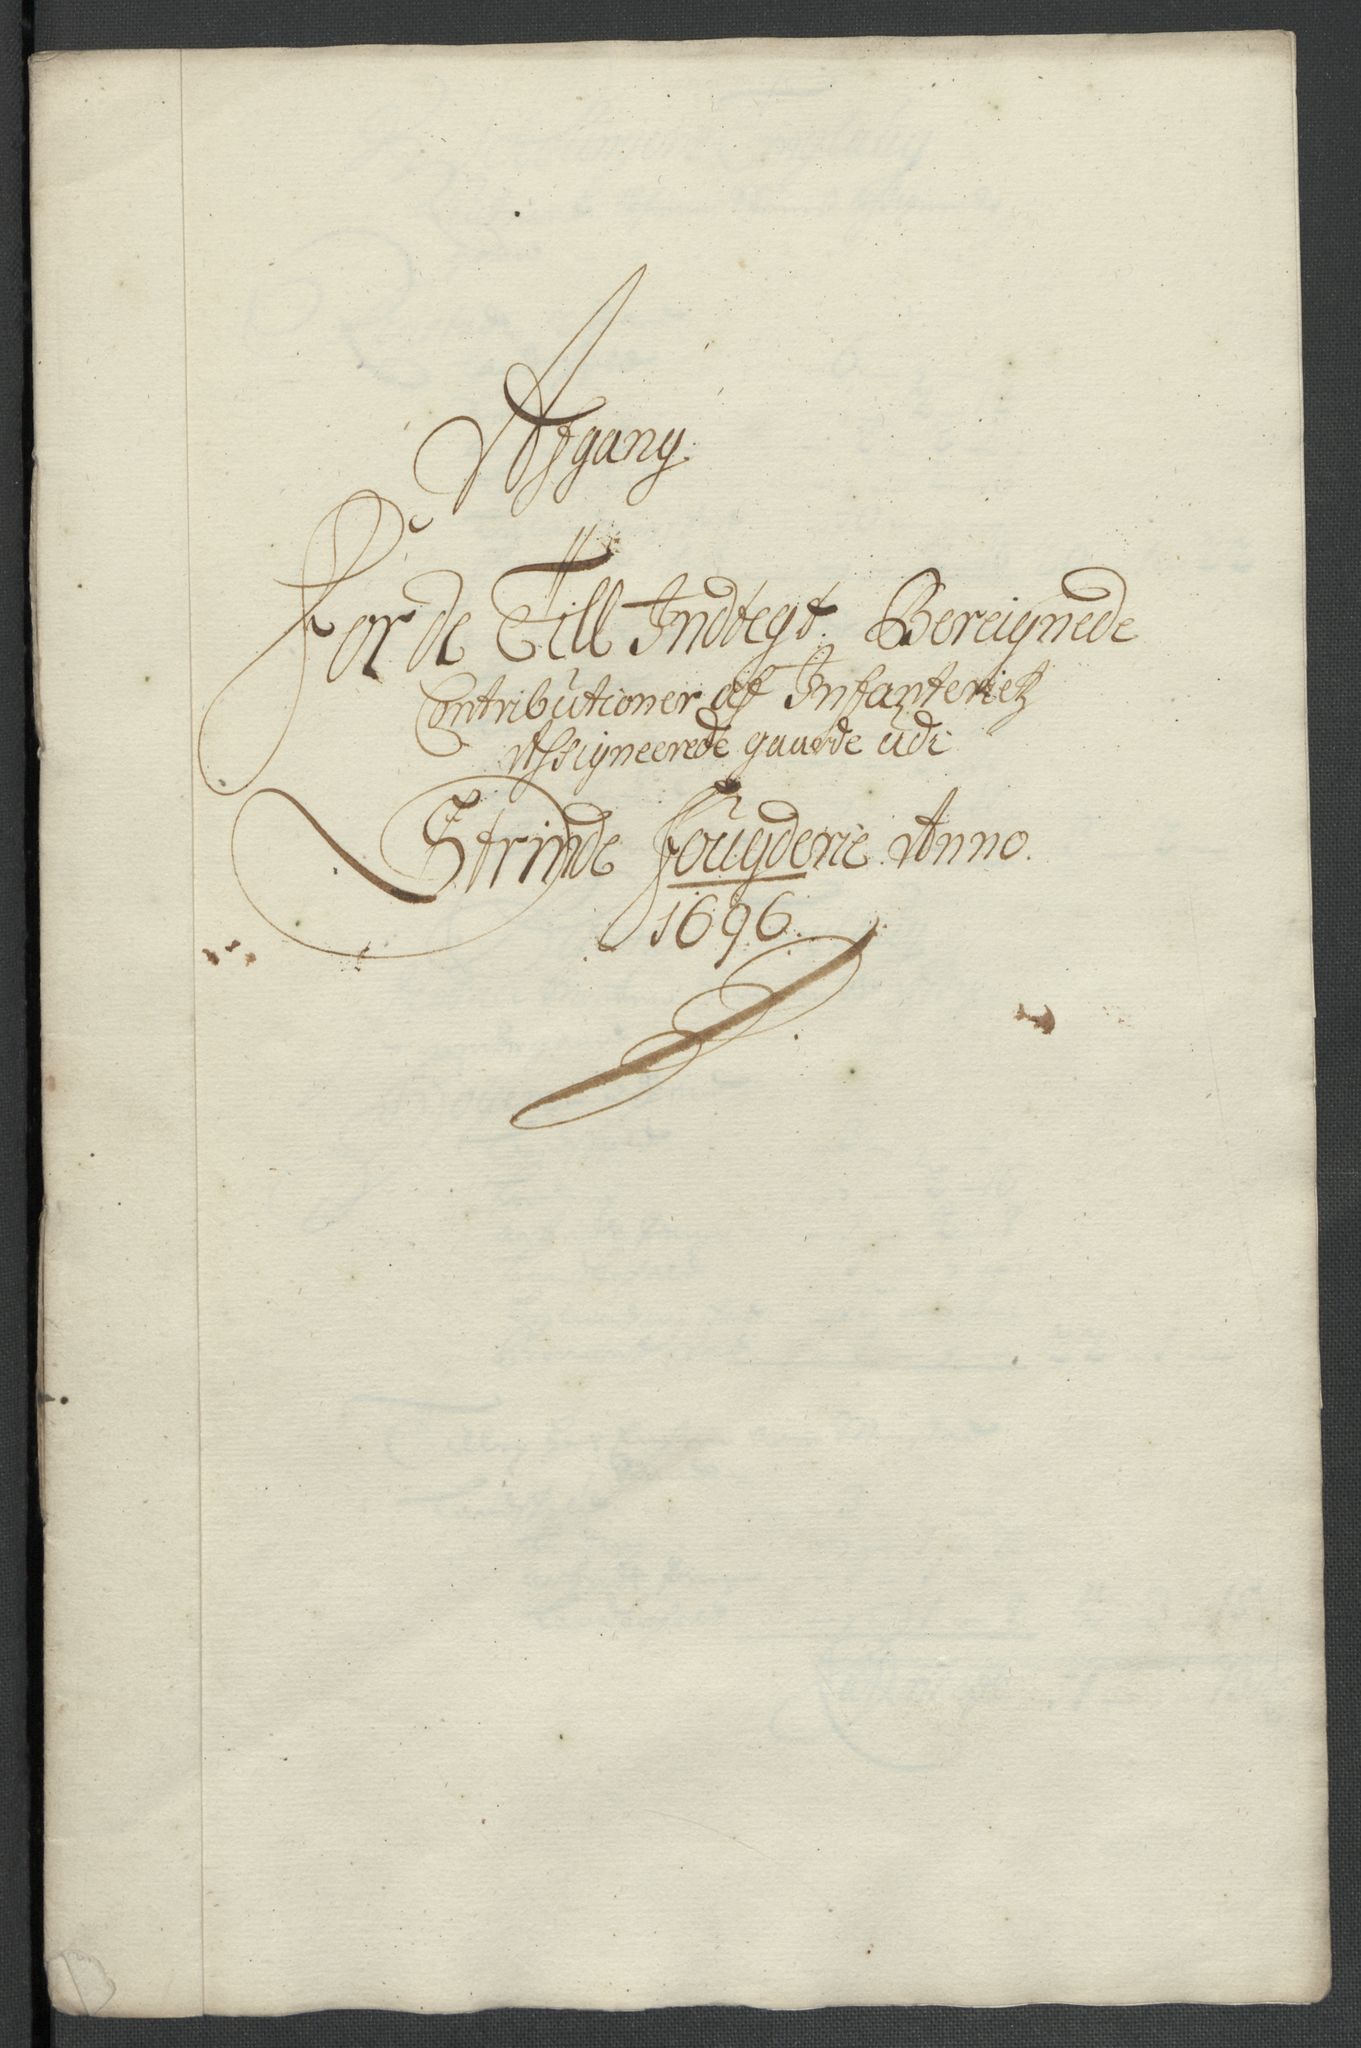 Afgang
For de Till Indtegt Bereignede
Contributioner af Infanteriets
Assigneerede gaarde udi
Strinde fougderie Anno
1696